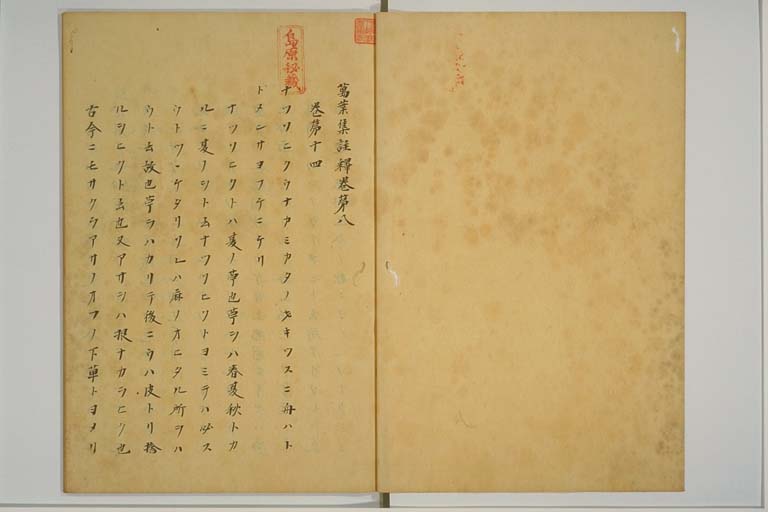 萬葉集註釋卷第八
卷第十四
ナツソヒクウナカミカタノオキツスニ舟ハト
ドメンサヨフケニケリ
ナツソヒクトハ夏ノ苧也苧ヲハ春夏秋トカ
ルニ夏ノヲト云ナツソヒクトヨミテハ必ス
ウトツヽケタリソレハ麻ノオヒタル所ヲハ
ウト云故也苧ヲハカリテ後ニウハ皮トリ捨
ルヲヒクト云也又アサヲハ根ナカラヒク也
古今ニモサクラアサノオフノ下草トヨメリ
島原秘蔵